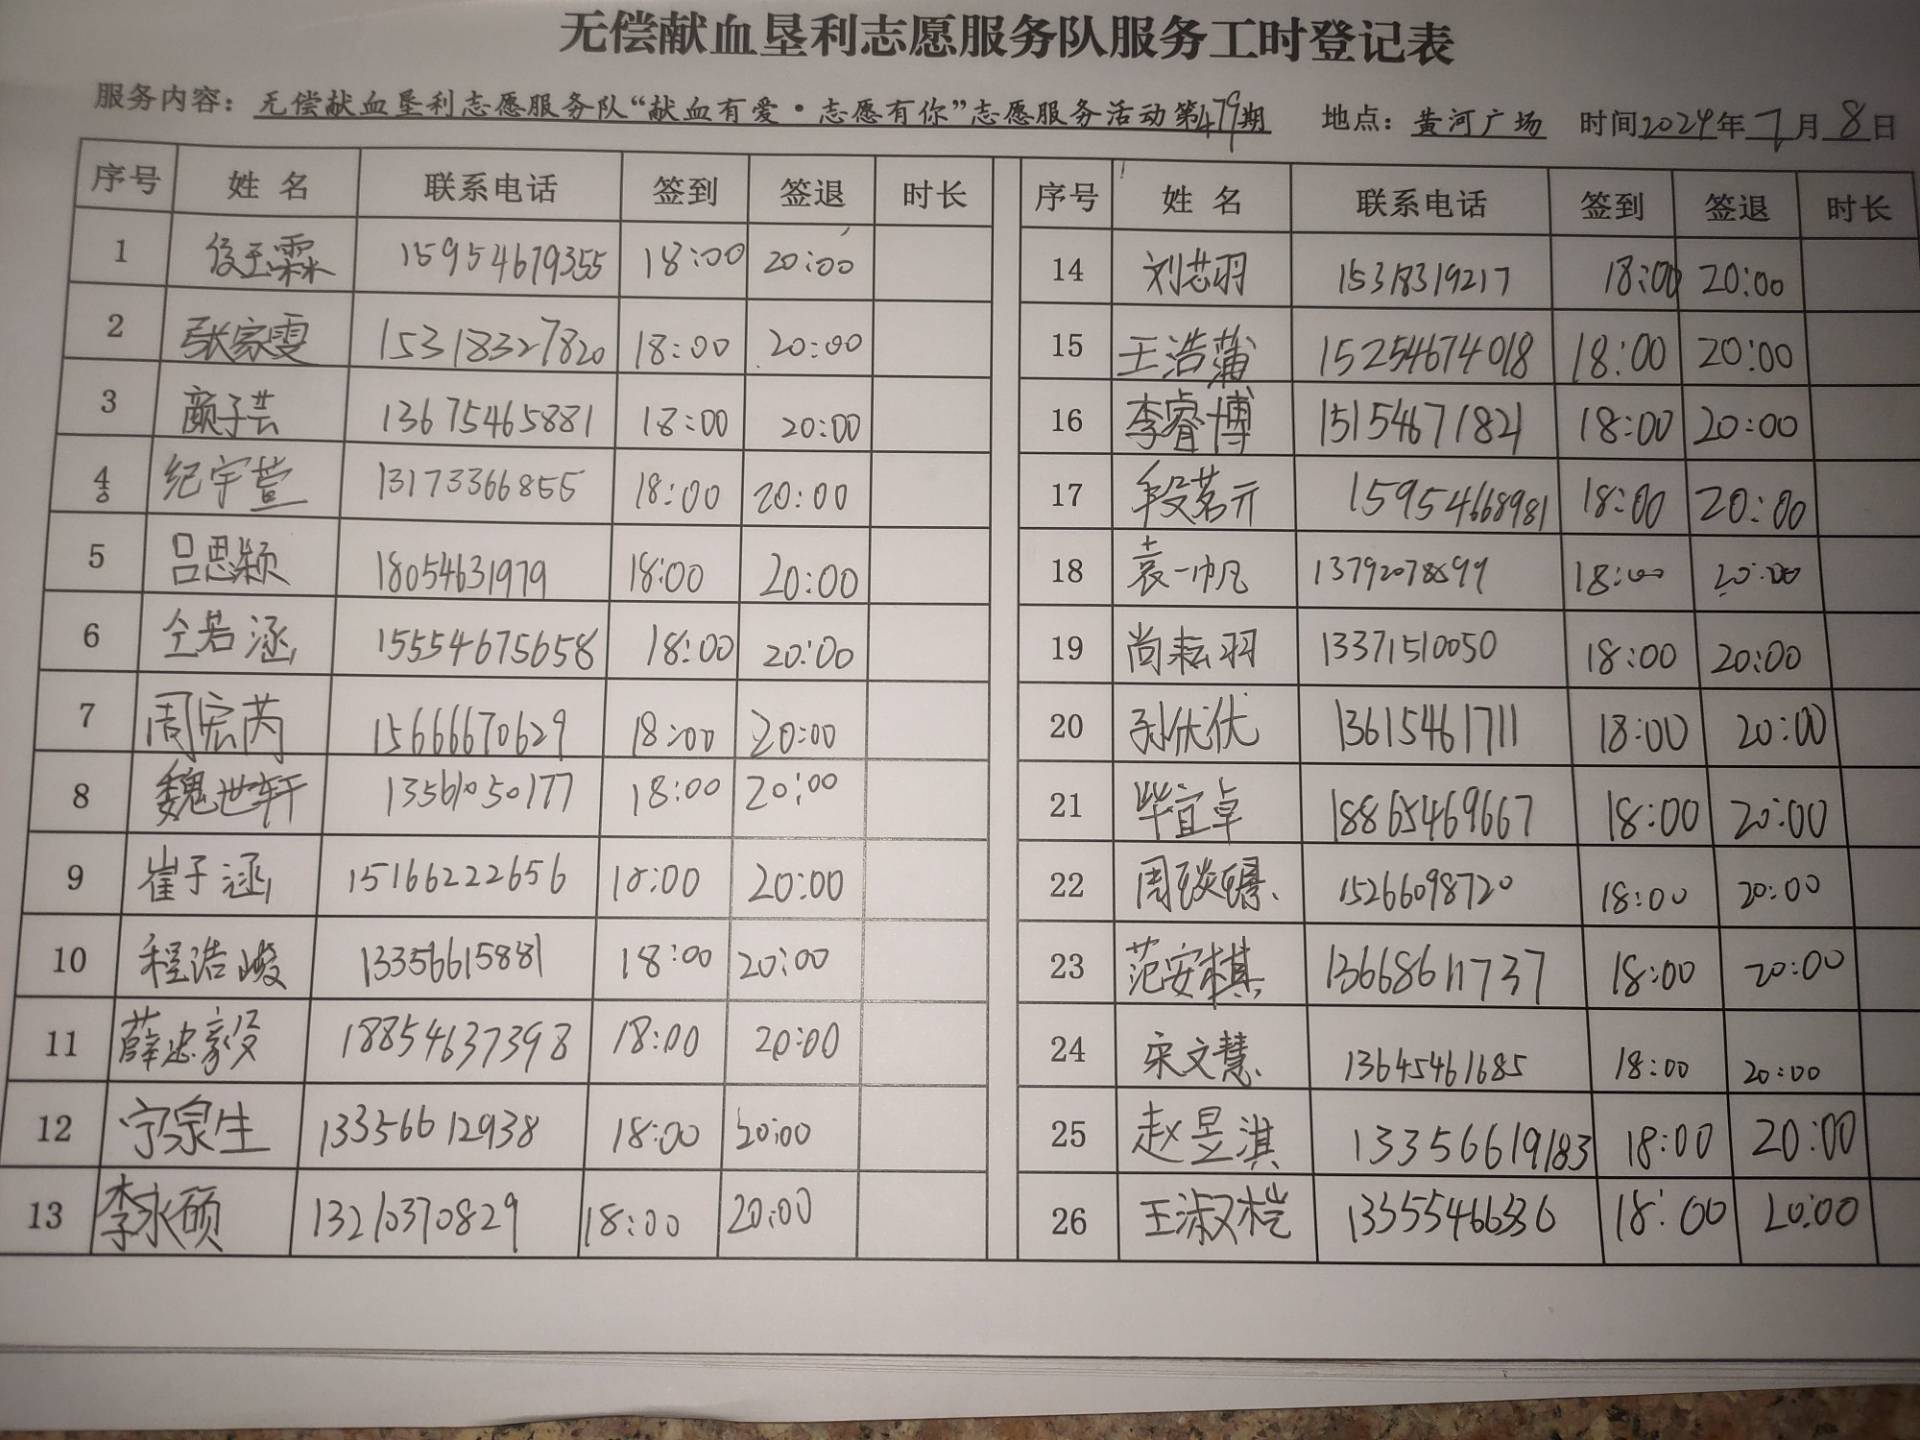 无偿献血垦利志愿服务队服务工时登记表
服务内容：无偿献血垦利志愿服务队“献血有爱·志愿有你”志愿服务活动第479期 地点：黄河广场 时间2024年7月8日
序号 姓名 联系电话 签到 签退 时长 序号 姓名 联系电话 签到 签退 时长
1 15954679355 18:00 20:00 14 刘芯羽 15318319217 18:00 20:00
2 张家雯 15318327820 18:00 20:00 15 王浩蒲 15254674018 18:00 20:00
3 颜子芸 13675465881 18:00 20:00 16 李睿博 15154671821 18:00 20:00
4 纪宇萱 13173366855 18:00 20:00 17 段茗亓 15954668981 18:00 20:00
5 吕思颖 18054631979 18:00 20:00 18 袁一帆 18:00 20:00
6 仝若涵 15554675658 18:00 20:00 19 尚耘羽 13371510050 18:00 20:00
7 周宏芮 15666670629 18:00 20:00 20 孙优优 13615461711 18:00 20:00
8 魏世轩 13561050177 18:00 20:00 21 毕宜卓 18865469667 18:00 20:00
9 崔子涵 15166222656 18:00 20:00 22 周琰 15266098720 18:00 20:00
10 程浩峻 13356615881 18:00 20:00 23 范安棋 13668611737 18:00 20:00
11 薛忠毅 18854637398 18:00 20:00 24 宋文慧 13645461685 18:00 20:00
12 宁泉生 13356612938 18:00 20:00 25 赵昱淇 13356619183 18:00 20:00
13 李永硕 13210370829 18:00 20:00 26 王淑桤 18:00 20:00